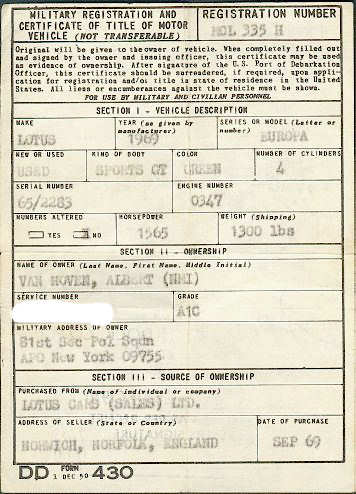 MILITARY REGISTRATION AND
CERTIFICATE OF TITLE OF MOTOR
VEHICLE (NOT TRANSFERABLE)
REGISTRATION NUMBER
MOL 335 H
Original will be given to the owner of vehicle. When completely filled out
and signed by the owner and issuing officer, this certificate may be used
as evidence of ownership. After signature of the U.S. Port of Debarkation
Officer, this certificate should be surrendered, if required, upon appli-
cation for registration and/or title in state of residence in the United
States. All liens or encumbrances against the vehicle must be shown.
FOR USE BY MILITARY AND CIVILIAN PERSONNEL
SECTION I - VEHICLE DESCRIPTION
MAKE
LOTUS
YEAR (as given by manufacturer)
1969
SERIES OR MODEL (Letter or number)
EUROPA
NEW OR USED
USED
KIND OF BODY
SPORTS GT
COLOR
GREEN
NUMBER OF CYLINDERS
4
SERIAL NUMBER
65/2283
ENGINE NUMBER
0347
NUMBERS ALTERED
YES NO
HORSEPOWER
1565
WEIGHT (Shipping)
1300 lbs
SECTION II - OWNERSHIP
NAME OF OWNER (Last Name, First Name, Middle Initial)
VAN HOVEN, ALBERT (NMI)
SERVICE NUMBER
GRADE
A1C
MILITARY ADDRESS OF OWNER
81st Sec Pol Sqdn
APO New York 09755
SECTION III - SOURCE OF OWNERSHIP
PURCHASED FROM (Name of individual or company)
LOTUS CARS (SALES) LTD.
ADDRESS OF SELLER (State or Country)
NORWICH, NORFOLK, ENGLAND
DATE OF PURCHASE
SEP 69
DD FORM 1 DEC 50 430